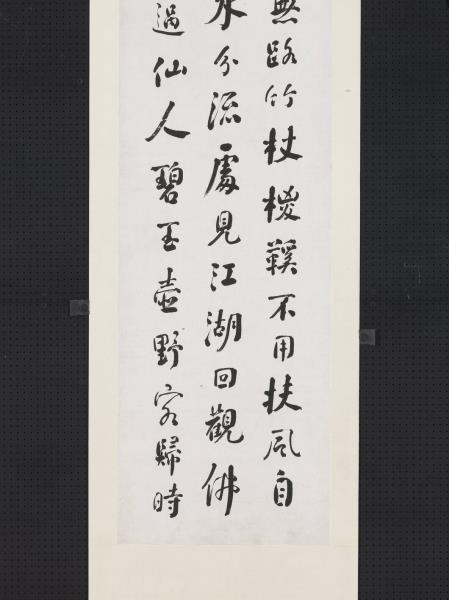 無路竹杖椶鞵不用扶風自
水分流處見江湖回觀佛
過仙人碧玉壺野客歸時